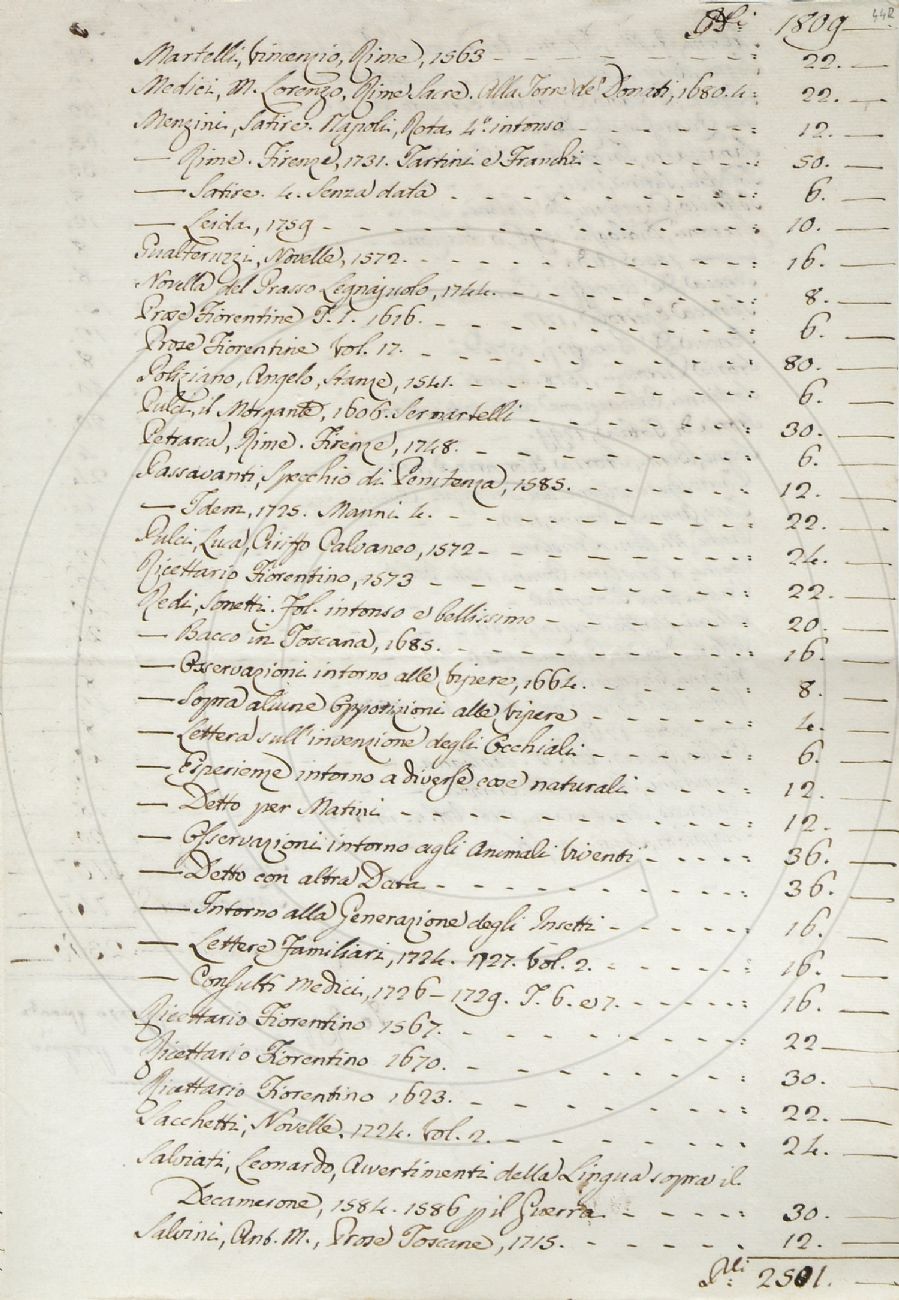 442
Pli 1809
Martelli, Vincenzio, Rime, 1563 22.
Medici, M. Lorenzo, Rime Sacre. Alla Torre de' Donati, 1680. 4: 22.
Menzini, Satire. Napoli, Rota. 4.° intonso 12.
— Rime. Firenze, 1731. Tartini e Franchi 50.
— Satire. 4. Senza data 6.
— Leida, 1759 10.
Gualteruzzi, Novelle, 1572. 16.
Novella del Grasso Legnajuolo, 1744. 8.
Prose Fiorentine T. 1. 1616. 6.
Prose Fiorentine Vol. 17. 80.
Poliziano, Angelo, Stanze, 1541. 6.
Pulci, il Morgante, 1606. Sermartelli 30.
Petrarca, Rime. Firenze, 1748. 6.
Passavanti, Specchio di Penitenza, 1585. 12.
— Idem, 1725. Manni 4. 22.
Pulci, Luca, Ciriffo Calvaneo, 1572 24.
Ricettario Fiorentino, 1573 22.
Redi, Sonetti. Fol. intonso e bellissimo 20.
— Bacco in Toscana, 1685. 16.
— Osservazioni intorno alle Vipere, 1664. 8.
— Sopra alcune Opposizioni alle Vipere 4.
— Lettera sull'invenzione degli Occhiali 6.
— Esperienze intorno a diverse cose naturali 12.
— Detto per Matini 12.
— Osservazioni intorno agli Animali Viventi 36.
— Detto con altra Data 36.
— Intorno alla Generazione degli Insetti 16.
— Lettere Familiari, 1724. 1727. Vol. 2. 16.
— Consulti Medici, 1726 – 1729. T. 6. e 7. 16.
Ricettario Fiorentino 1567. 22
Ricettario Fiorentino 1670. 30.
Ricettario Fiorentino 1623. 22.
Sacchetti, Novelle. 1724. Vol. 2. 24.
Salviati, Leonardo, Avvertimenti della Lingua sopra il
Decamerone, 1584. 1586 pp il Guerra 30.
Salvini, Ant. M., Prose Toscane, 1715. 12.
Pli 2501.